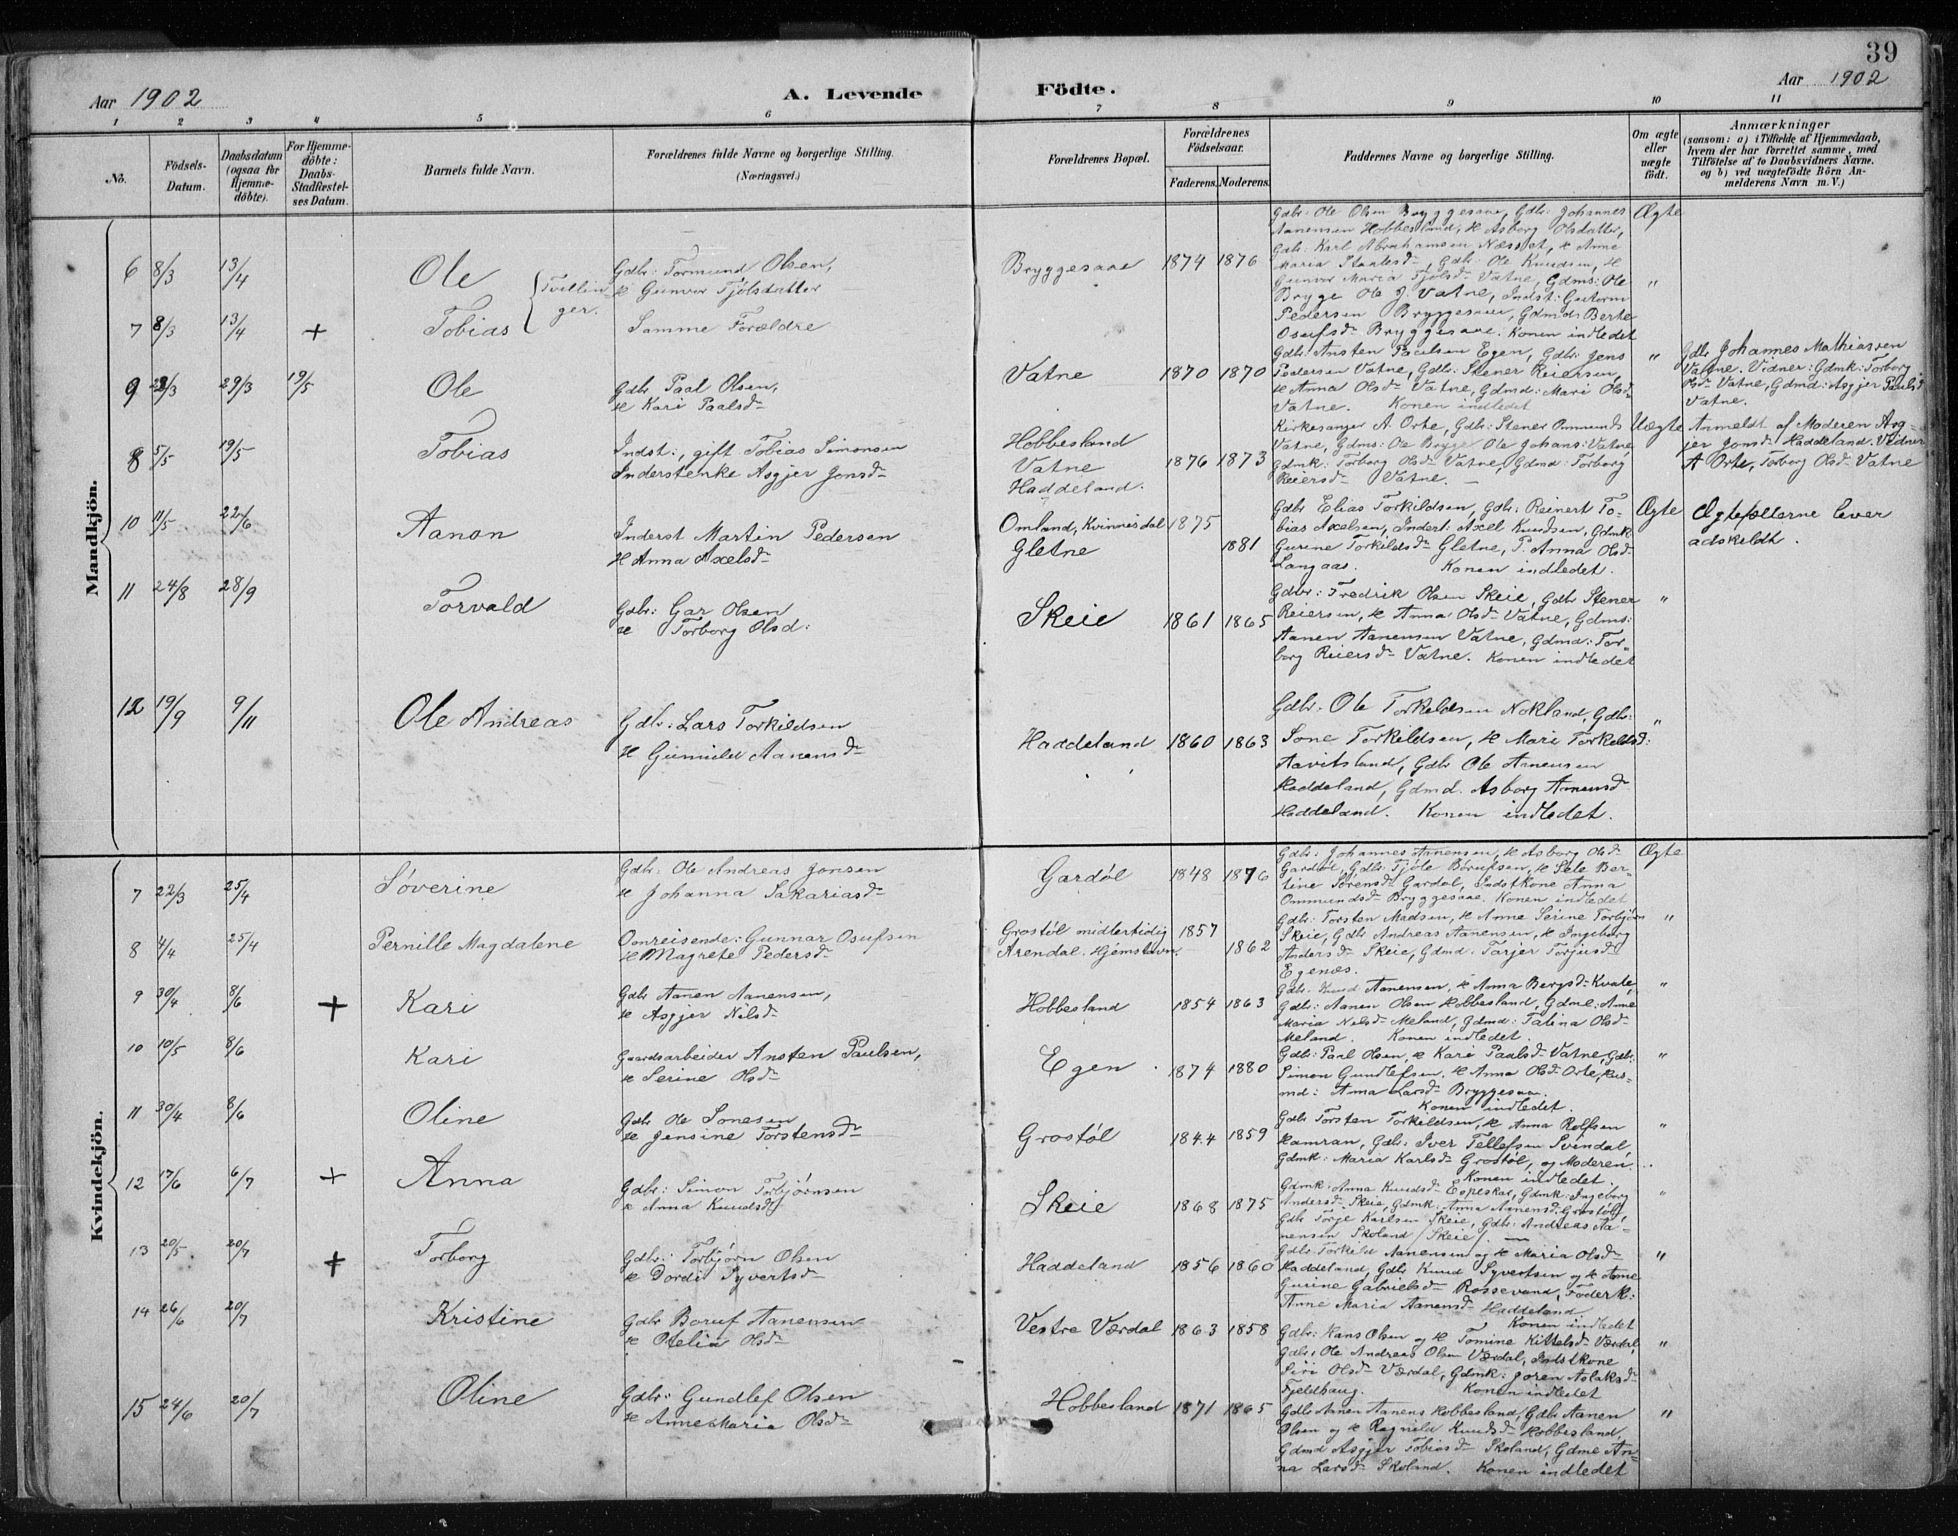 39
Aar 1902
A. Levende Födte.
Aar 1902
1 2 3 4 5 6 7 8 9 10 11
No.
Födsels-
Datum.
Daabsdatum
(ogsaa for
Hjemme-
döbte).
For Hjemme-
döbte:
Daabs-
Stadfæstel-
ses Datum.
Barnets fulde Navn.
Forældrenes fulde Navne og borgerlige Stilling.
(Næringsvei.)
Forældrenes Bopæl.
Forældrenes
Födselsaar.
Faderens. Moderens.
Faddernes Navne og borgerlige Stilling.
Om ægte
eller
uægte
födt.
Anmærkninger
(saasom: a) i Tilfælde af Hjemmedaab,
hvem der har forrettet samme, med
Tilföielse af to Daabsvidners Navne.
og b) ved uægtefödte Börn An-
melderens Navn m. V.)
Mandkjön.
6 8/3 13/4 Ole {Tvillin-
ger.
Gdbr: Tormund Olsen,
H Gunvor Tjølsdatter
Bryggesaae 1874 1876
Gdbr: Ole Olsen Bryggesaae, Gdbr: Johannes
Aanensen Hobbesland, H Asborg Olsdatter,
Gdb: Karl Abrahamsen Næsset, H Anne
Maria Staalesd, Gdb: Ole Knudsen, H
Gunvor Maria Tjølsd Vatne, Gdms: Ole
Brygge Ole J Vatne, Indst: Gutorm
Pedersen Bryggesaae, Gdmd: Berte
Osufsd Bryggesaae. Konen indledet
Ægte
7 8/3 13/4 + Tobias
Samme Forældre
"
9 23/3 29/3 19/5 Ole
Gdbr Paal Olsen,
H Kari Paalsd
Vatne 1870 1870
Gdbr: Ansten Paulsen Egen, Gdbr: Jens
Pedersen Vatne, Gdb: Stener Reiersen,
H Anna Olsd Vatne, Gdmd: Mari Olsd
Vatne. Konen indledet
"
Gdbr Johannes Mathiassen
Vatne. Vidner: Gdmk: Torborg
Olsd Vatne, Gdmd: Asgjer Paulsd
Vatne.
8 5/5 19/5 Tobias
Indst:, gift Tobias Simonsen
Inderstenke Asgjer Jonsd
Hobbesland
Vatne
Haddeland. 1876 1873
Kirkesanger A Orte, Gdb: Stener Ommunds
Vatne, Gdms: Ole Brygge Ole Johans: Vatne
Gdmk: Torborg Olsd Vatne, Gdmd: Torborg
Reiersd Vatne. —
Uægte
Anmeldt af Moderen Asg-
jer Jonsd Haddeland. Vidner
A Orte, Torborg Olsd Vatne
10 11/5 22/6 Aanon
Inderst Martin Pedersen
H Anna Axelsd
Omland, Kvinnesdal 1875
Gletne 1881
Gdbr Elias Torkildsen, Gdb: Reinert To-
bias Axelsen, Inderst: Axel Knudsen, Gdmk
Gurine Torkildsd Gletne, P. Anna Olsd
Langaas. Konen indledet.
Ægte
Ægtefællerne lever
adskeldt.
11 24/8 28/9 Torvald
Gdbr: Gar Olsen
H Torborg Olsd:
Skeie 1861 1865
Gdbr: Fredrik Olsen Skeie, Gdb Stener
Reiersen, H Anna Olsd Vatne, Gdms:
Aanen Aanensen Vatne, Gdmd: Tor-
borg Reiersd Vatne. Konen indledet
"
12 19/9 9/11 Ole Andreas
Gdbr: Lars Torkildsen
H Gunnild Aanensd
Haddeland 1860 1863
Gdbr: Ole Torkildsen Nokland, Gdb:
Sone Torkildsen, H Mari Torkildsd:
Aavitsland, Gdbr Ole Aanensen
Haddeland, Gdmd. Asborg Aanensd
Haddeland. Konen indledet.
"
Kvindekjön.
7 22/3 25/4 Søverine
Gdbr: Ole Andreas Jonsen
H Johanna Sakariasd
Gardøl 1848 1876
Gdb: Johannes Aanensen, H Asborg Olsd
Gardøl, Gdb: Tjøle Børufsen, H Sele Ber-
tine Sørensd Gardøl, Indstkone Anna
Ommundsd Bryggesaae. Konen indledet
Ægte
8 4/4 25/4 Pernille Magdalene
Omreisende: Gunnar Osufsen
H Magrete Pedersd
Grostøl midlertidig 1857
Arendal. Hjemstavn. 1862
Gdb: Torsten Madsen, H Anne Serine Torbjørn
Skeie, Gdb Andreas Aanensen, H Ingeborg
Andersd Skeie, Gdmd. Tarjer Torjusd
Egenæs.
"
9 30/4 8/6 + Kari
Gdb: Aanen Aanensen,
H Asgjer Nilsd
Hobbesland 1854 1863
Gdb: Knud Aanensen, H Anna Bergsd Kvale,
Gdb: Aanen Olsen Hobbesland, Gdme: Anne
Maria Nilsd Meland, Gdmd: Talina Olsd
Meland. Konen indledet.
"
10 10/5 8/6 Kari
Gaardsarbeider Ansten Paulsen,
H Serine Olsd
Egen 1874 1880
Gdb: Paul Olsen, H Kari Paalsd Vatne, Gdb:
Simon Gundlefsen, H Anna Olsd Orte, Hus-
md: Anna Larsd Bryggesaae.
Konen indledet.
"
11 30/4 8/6 Oline
Gdb Ole Sonesen
H Jensine Torstensd
Grostøl 1844 1859
Gdbr Torsten Torkildsen, H Anna Rolfsen
Hamran, Gdb: Iver Tellefsen Svindal,
Gdmk: Maria Karlsd Grostøl, og Moderen.
Konen indledet.
"
12 17/6 6/7 + Anna
Gdbr: Simon Torbjørnsen
H Anna Knudsd
Skeie 1868 1875
Gdmk: Anna Knudsd Espeskar, Gdmk: Ingeborg
Andersd Skeie, Gdmk: Anna Aanensd Grostøl,
Gdb Torje Karlsen Skeie, Gdb: Andreas Aa-
nensen Skoland /Skeie/. —
"
13 20/5 20/7 + Torborg
Gdbr: Torbjørn Olsen
H Dordi Syvertsd
Haddeland 1856 1860
Gdb: Torkild Aanensen og H Maria Olsd
Haddeland, Gdb Knud Syvertsen og H Anne
Gurine Gabrielsd Rossevand, Foderk:
Anne Maria Aanensd Haddeland
Konen indledet
"
14 26/6 20/7 Kristine
Gdb Boruf Aanensen
H Otelia Olsd
Vestre Værdal 1863 1858
Gdbr: Hans Olsen og H Tomine Kittelsd Værdal,
Gdb: Ole Andreas Olsen Værdal, Indstkone
Siri Olsd Værdal, Gdmk: Joren Aslaksd
Fjeldhaug. Konen indledet
"
15 24/6 20/7 Oline
Gdbr: Gundlef Olsen
H Anne Maria Olsd
Hobbesland 1871 1865
Gdb: Aanen Aanens Hobbesland, Gdb Aanen
Olsen og H Ragnild Knudsd Hobbesland,
Gdmd Asgjer Tobiasd Skoland, Gdme An-
na Larsd Skoland. Konen indledet
"